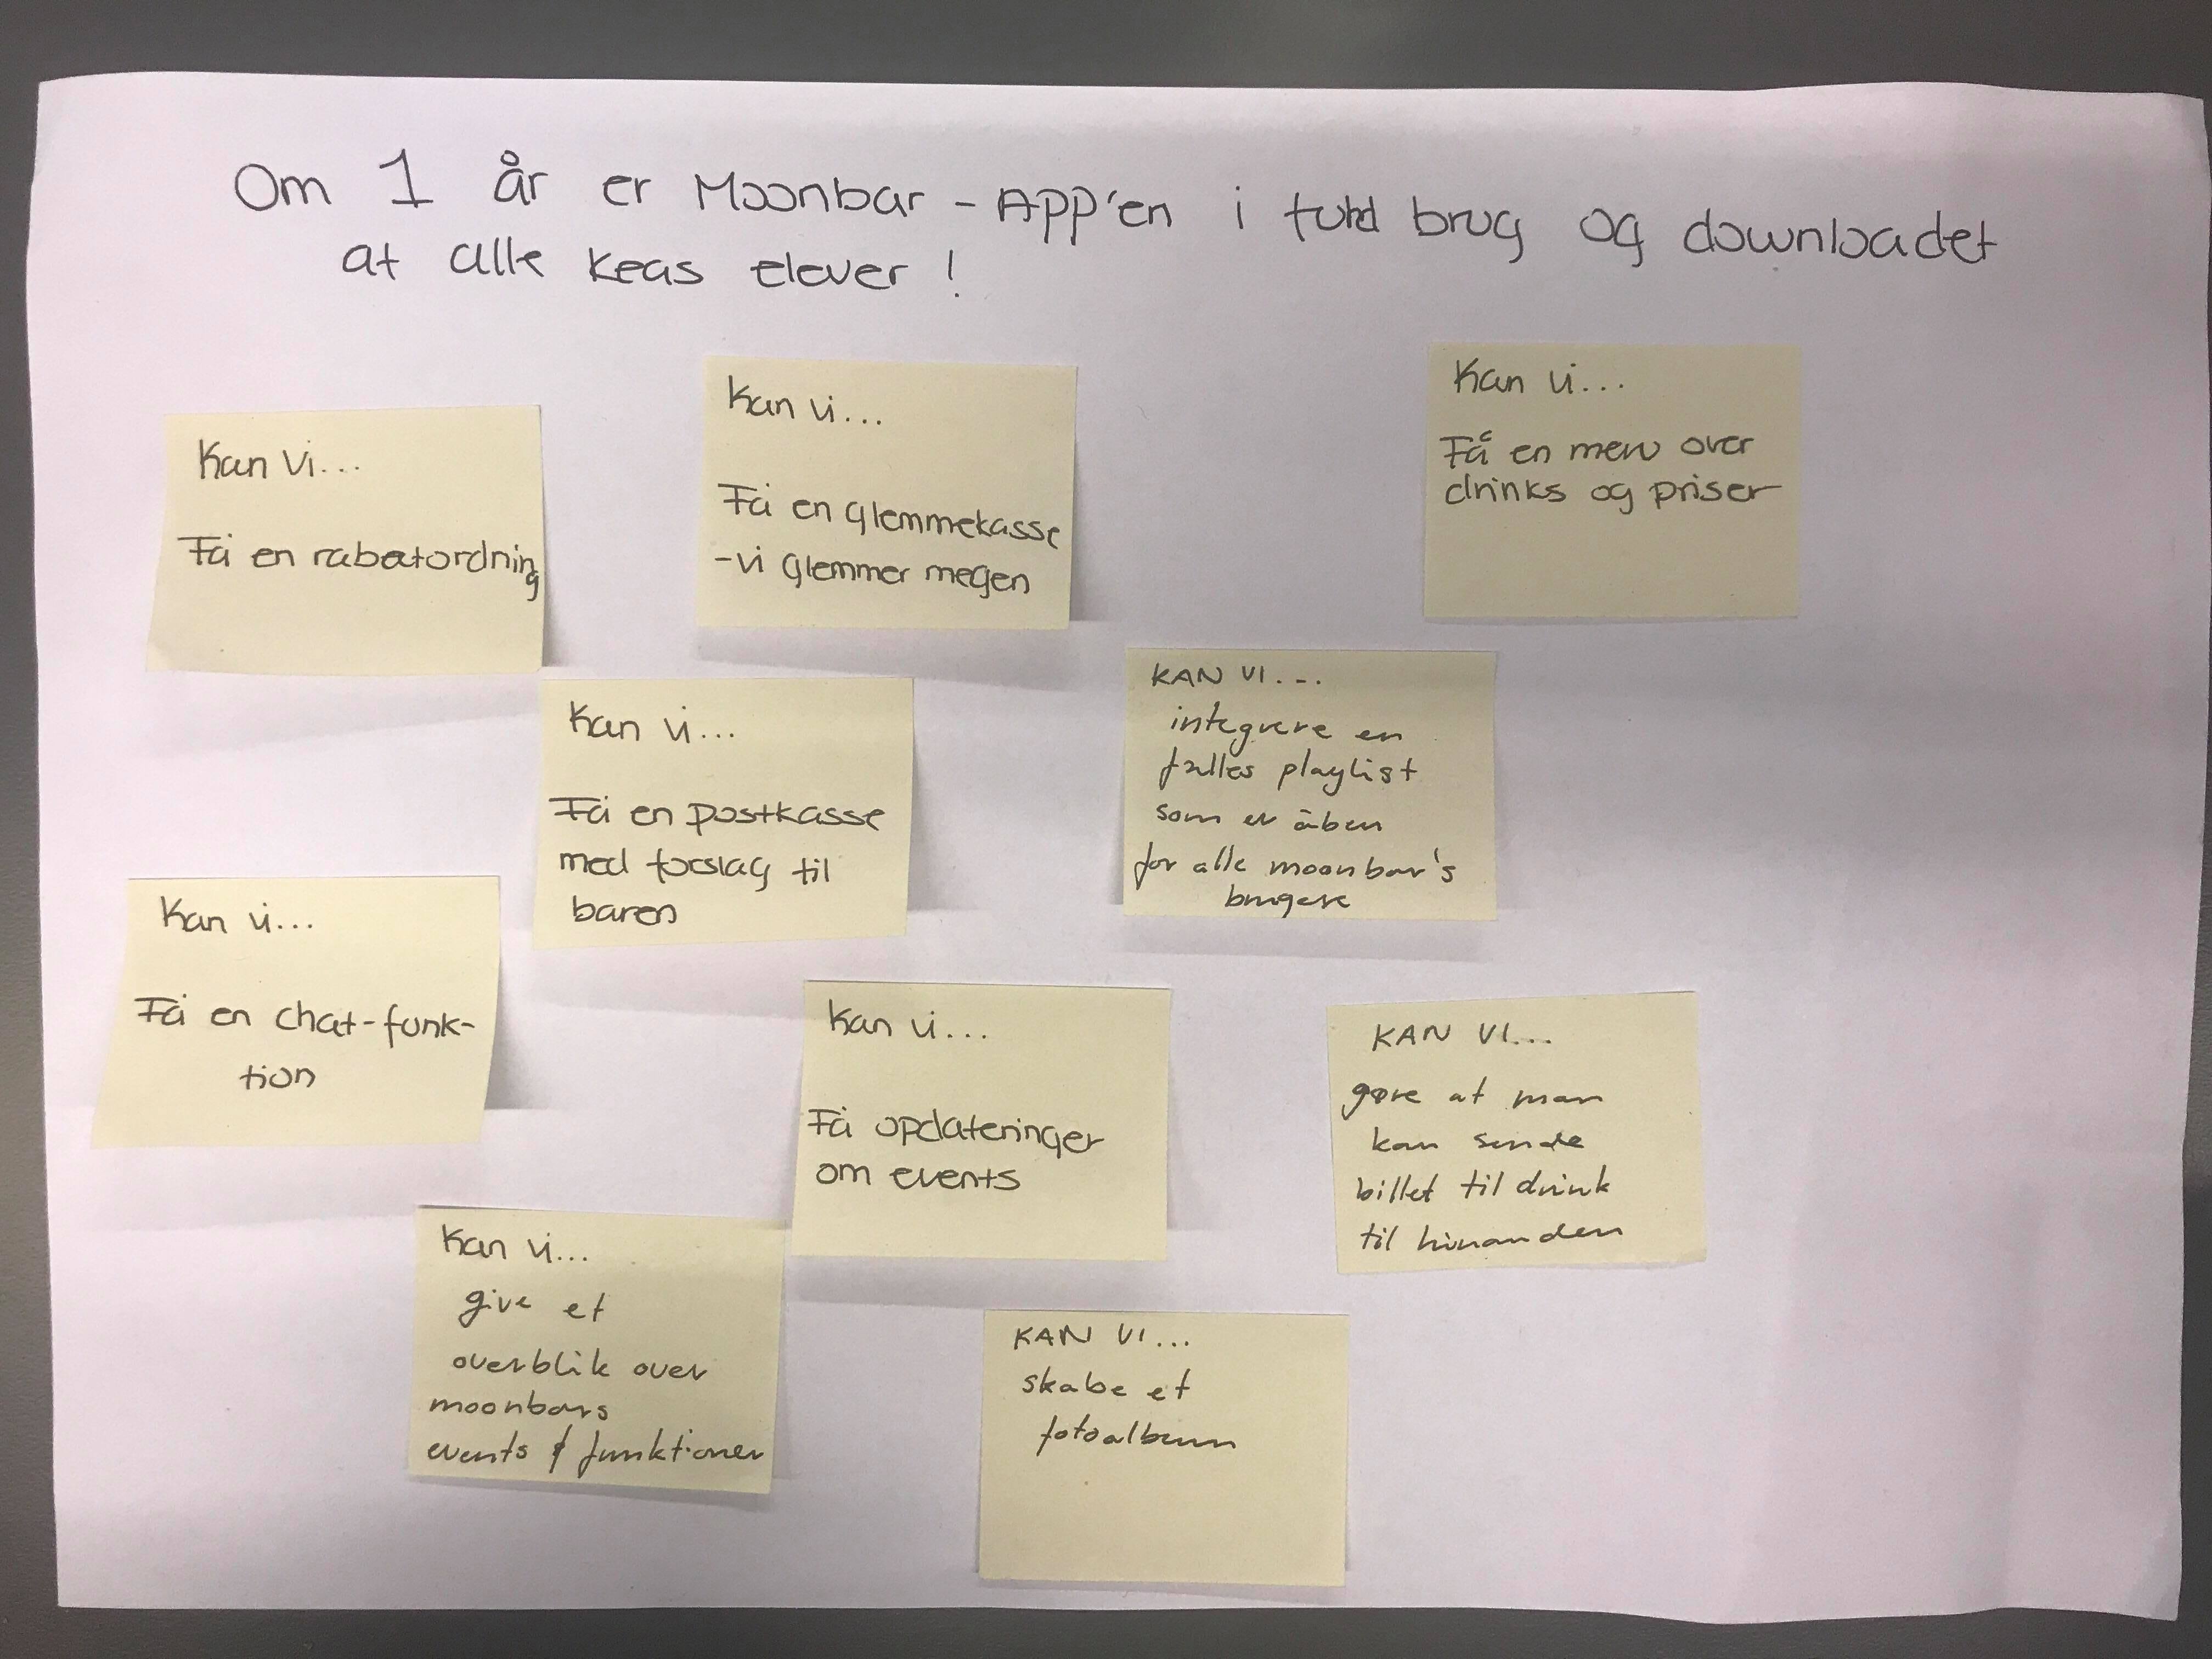 Om 1 år er Moonbar - App'en i fuld brug og downloadet
af alle Keas elever !
Kan vi...
Få en rabatordning
Kan vi...
Få en glemmekasse
- vi glemmer megen
Kan vi...
Få en menu over
drinks og priser
Kan vi...
Få en postkasse
med forslag til
baren
KAN VI...
integrere en
fælles playlist
som er åben
for alle moonbar's
brugere
Kan vi...
Få en chat-funk-
tion
Kan vi...
Få opdateringer
om events
KAN VI...
gøre at man
kan sende
billet til drink
til hinanden
Kan vi...
give et
overblik over
moonbars
events & funktioner
KAN VI...
skabe et
fotoalbum